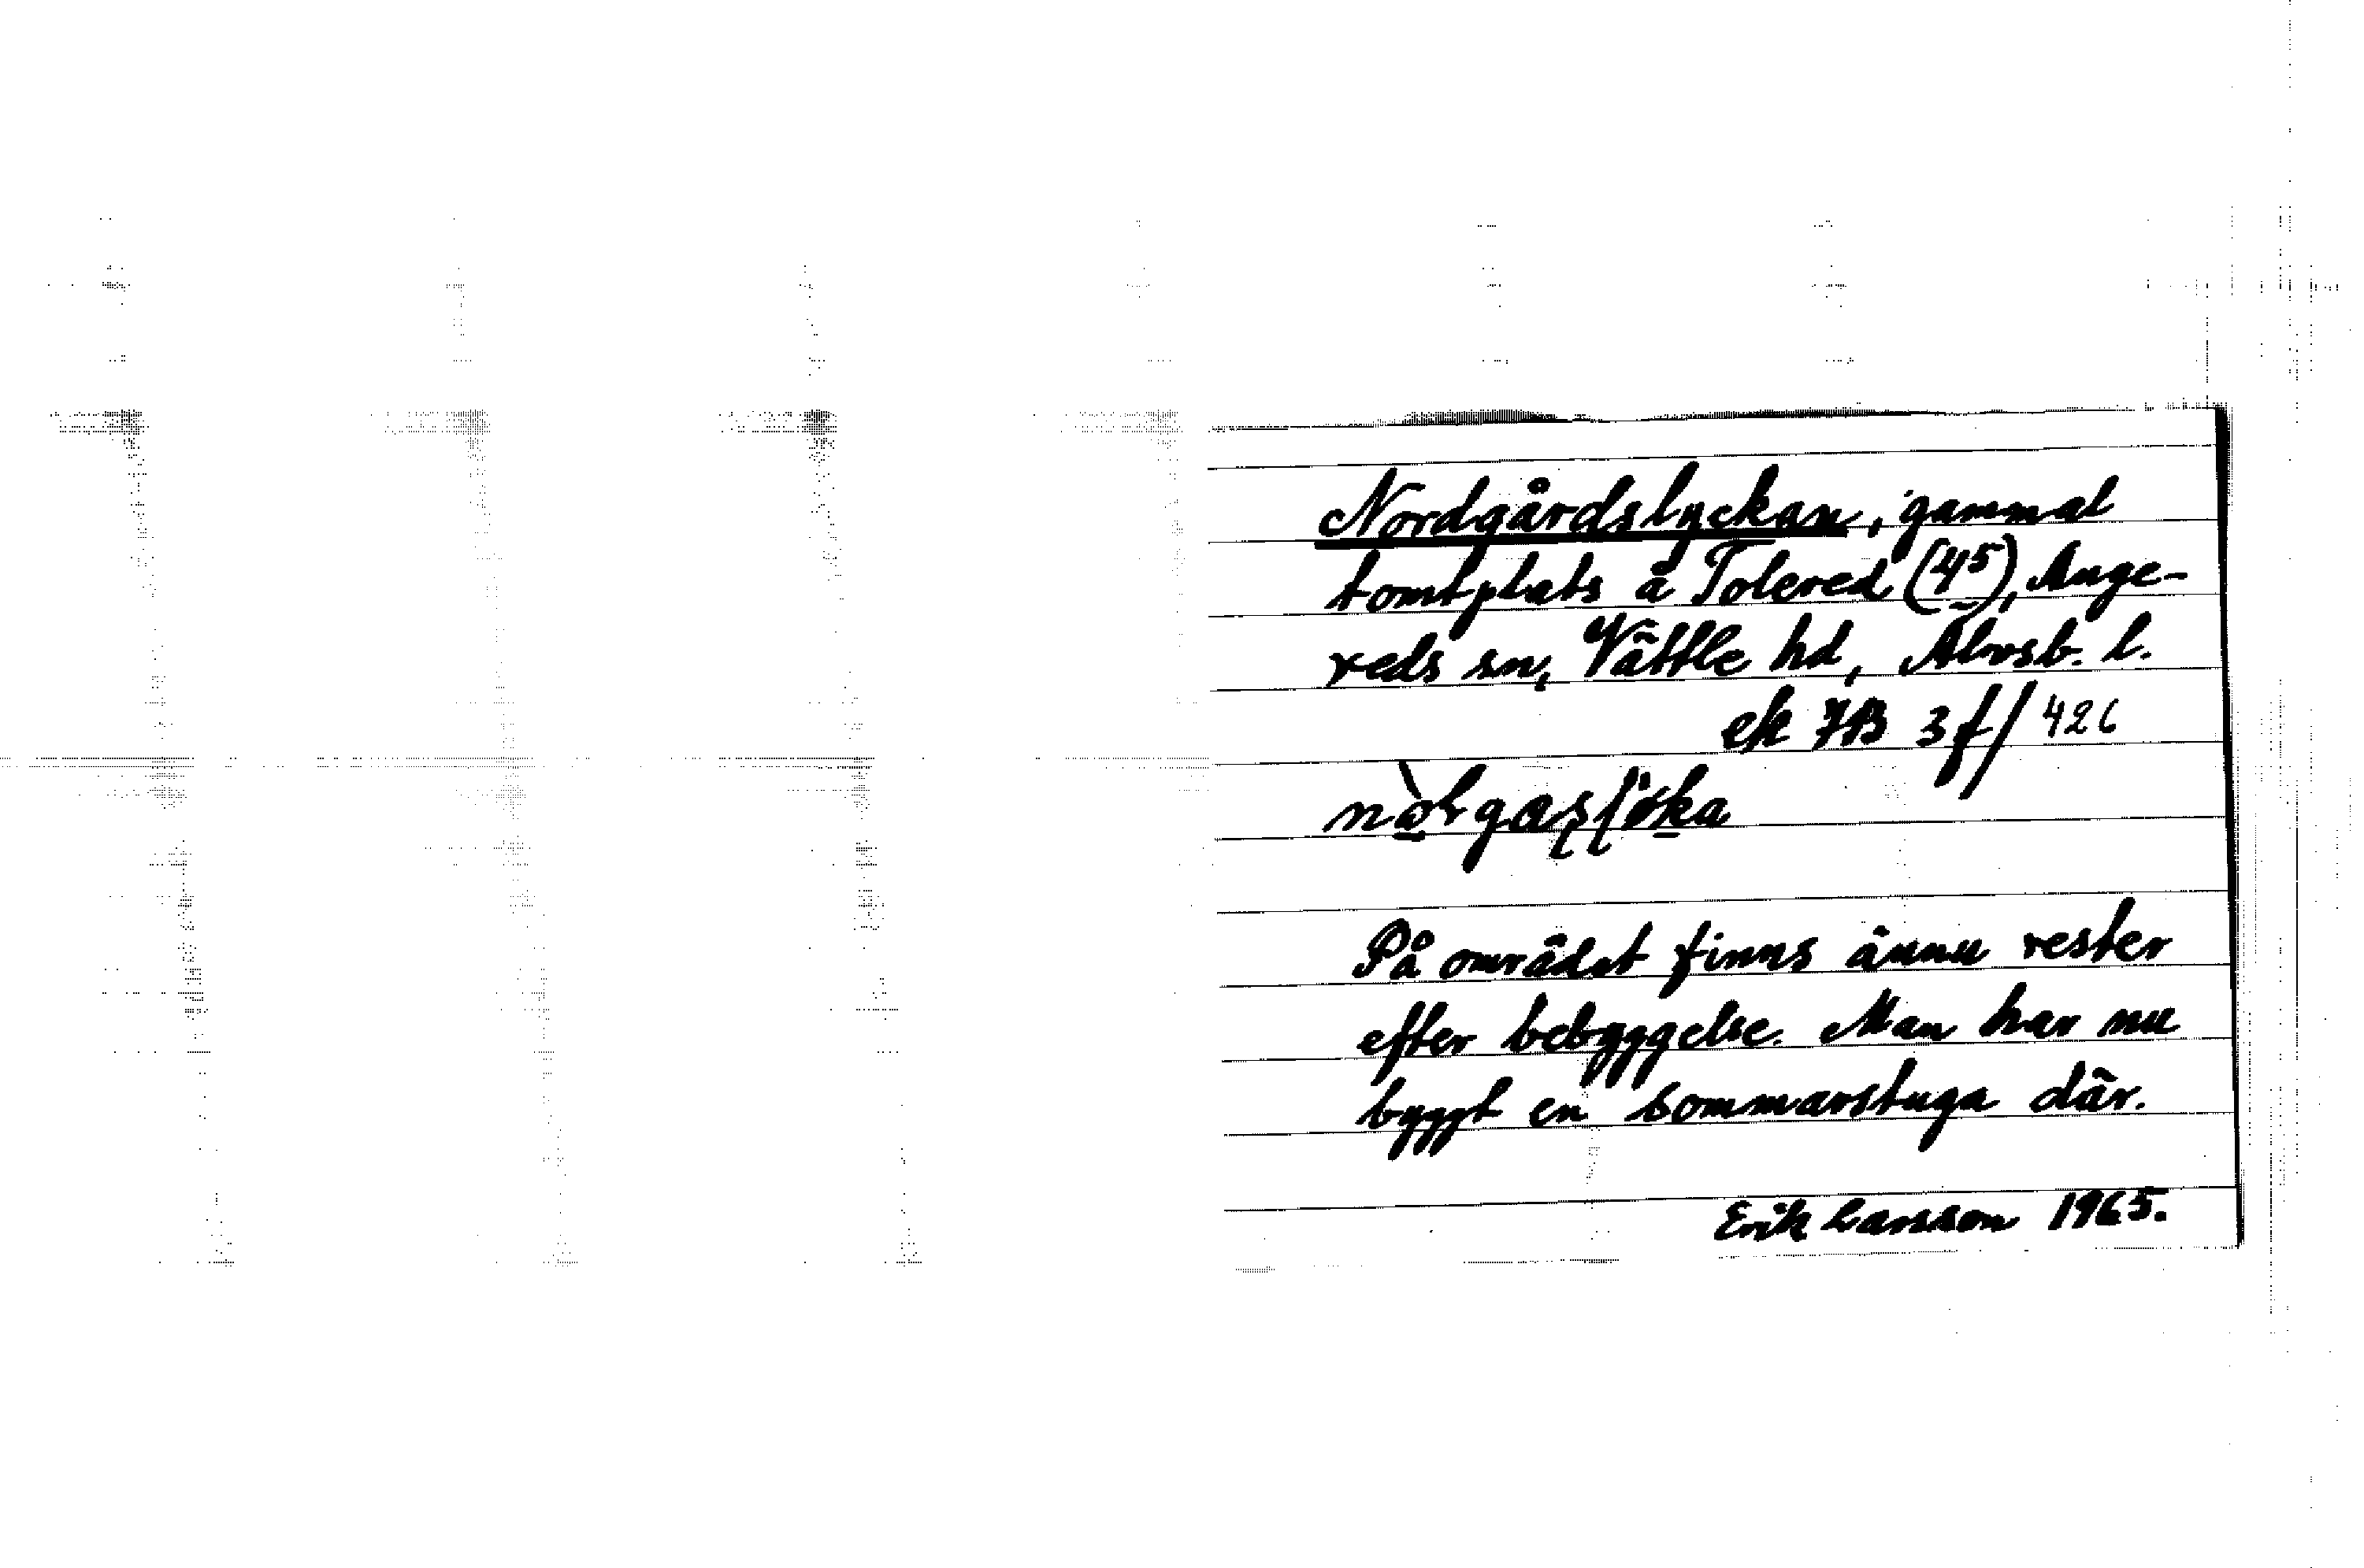 Nordgårdslyckan, gammal
tomtplats å Tolered (4⁵), Ange-
reds sn, Vättle hd, Älvsb. l.
ek 7B 3f/426
På området finns ännu rester
efter bebyggelse. Man har nu
byggt en sommarstuga där.
Erik Larsson 1965.